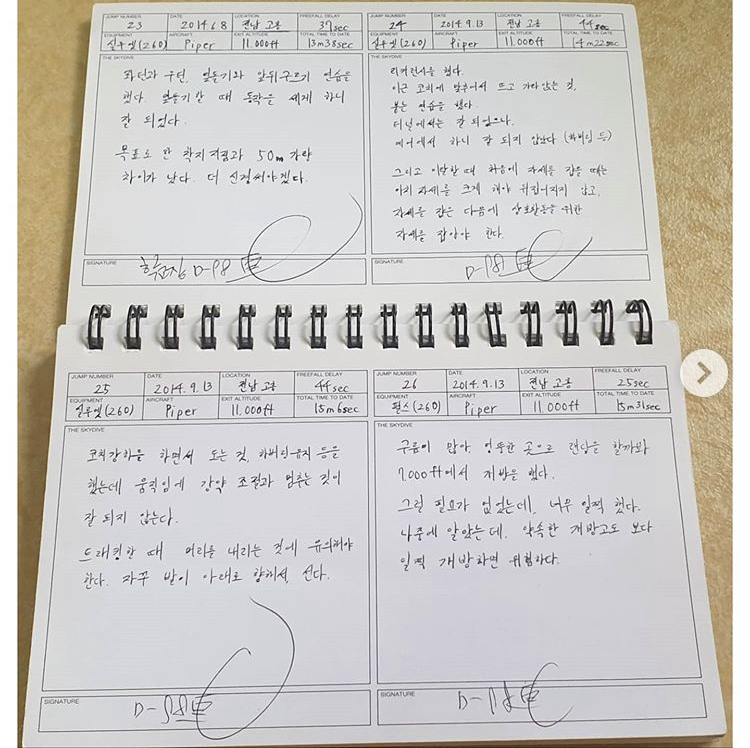 JUMP NUMBER DATE LOCATION FREEFALL DELAY
23 2014.6.8 전남 고흥 37sec
EQUIPMENT AIRCRAFT EXIT ALTITUDE TOTAL TIME TO DATE
실루엣(260) Piper 11.000ft 13m38sec
THE SKYDIVE
좌턴과 우턴, 옆돌기와 앞뒤구르기 연습을
했다. 옆돌기할 때 동작을 세게 하니
잘 되었다.
목표로 한 착지지점과 50m 가량
차이가 났다. 더 신경써야겠다.
SIGNATURE
D-98
JUMP NUMBER DATE LOCATION FREEFALL DELAY
24 2014.9.13 전남 고흥 44sec
EQUIPMENT AIRCRAFT EXIT ALTITUDE TOTAL TIME TO DATE
실루엣(260) Piper 11.000ft 14m22sec
THE SKYDIVE
리커런시를 했다.
이근 코치에 맞추어서 뜨고 가라앉는 것,
붙는 연습을 했다.
터널에서는 잘 되었으나,
에어에서 하니 잘 되지 않았다 (하버링 등)
그리고 이탈할 때 처음에 자세를 잡을 때는
아치 자세를 크게 해야 뒤집어지지 않고,
자세를 잡은 다음에 상호활동을 위한
자세를 잡아야 한다.
SIGNATURE
D-98
JUMP NUMBER DATE LOCATION FREEFALL DELAY
25 2014.9.13 전남 고흥 44sec
EQUIPMENT AIRCRAFT EXIT ALTITUDE TOTAL TIME TO DATE
실루엣(260) Piper 11.000ft 15m6sec
THE SKYDIVE
코치강하를 하면서 도는 것, 하버링유지 등을
했는데 움직임에 강약 조절과 멈추는 것이
잘 되지 않는다.
드래킹할 때 머리를 내리는 것에 유의해야
한다. 자꾸 발이 아래로 향해서 선다.
SIGNATURE
D-98
JUMP NUMBER DATE LOCATION FREEFALL DELAY
26 2014.9.13 전남 고흥 25sec
EQUIPMENT AIRCRAFT EXIT ALTITUDE TOTAL TIME TO DATE
펄스(260) Piper 11.000ft 15m31sec
THE SKYDIVE
구름이 많아 엉뚱한 곳으로 랜딩을 할까봐
7000ft에서 개방을 했다.
그럴 필요가 없었는데, 너무 일찍 했다.
나중에 알았는데, 약속한 개방고도 보다
일찍 개방하면 위험하다.
SIGNATURE
D-98